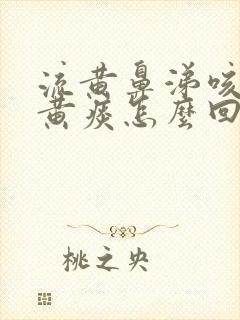 流黄鼻涕咳
黄痰怎麼回
桃之央